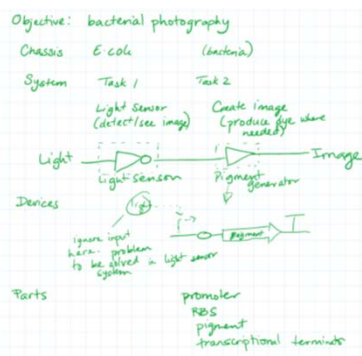 Objective: bacterial photography
Chassis E. coli (bacteria)
System Task 1 Task 2
Light Sensor Create image
(detect/see image) (produce dye where
needed)
Light Image
Light sensor Pigment
generator
Devices light
ignore input
here. problem
to be solved in light sensor
system
pigment
Parts promoter
RBS
pigment
transcriptional terminator